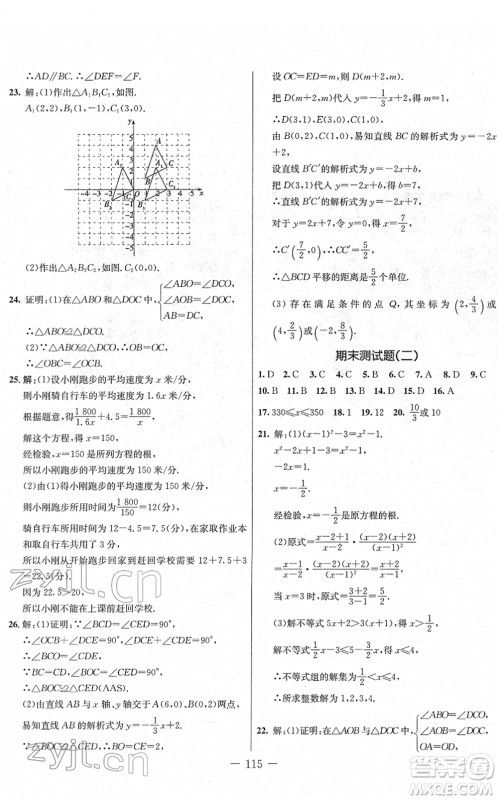 ∴AD∥BC. ∴∠DGE=∠F.
23. 解:(1)作出△A₁B₁C₁,如图.
A₁(2,2),B₁(1,-1),C₁(3,0).
(2)作出△A₂B₂C₂,如图.C₂(0,0).
24. 证明:(1)在△ABO和△DOC中,{∠ABO=∠DCO, ∠AOB=∠DOC,
∴△ABO≌△DCO.
(2)由(1)知,△ABO≌△DCO,∴BO=CO,
∴∠OBC=∠OCB.
25. 解:(1)设小刚跑步的平均速度为 x 米/分,
则小刚骑自行车的平均速度为 1.6x 米/分.
根据题意,得 1 800/1.6x +4= 1 800/x -0.5.
解这个方程,得 x=150.
经检验,x=150 是所列方程的根.
所以小刚跑步的平均速度为 150 米/分.
(2)由(1)得小刚跑步的平均速度为 150 米/分,
则小刚跑步所用时间为 1 800/150 =12(分),
骑自行车所用时间为 12-4.5=7.5(分),在家取作业本
和取自行车共用了 3 分,
所以小刚从开始跑步回家到赶回学校需要 12+7.5+3
=22.5(分).
因为 22.5>20,
所以小刚不能在上课前赶回学校.
26. 解:(1)证明:∵∠BOC=∠BCD=∠CED=90°,
∴∠OCB+∠DCE=90°,∠DCE+∠CDE=90°,
∴∠BCO=∠CDE.
∵BC=CD,∴∠BOC=∠CED=90°,
∴△BOC≌△CED(AAS).
(2)由直线 AB 与 x 轴、y 轴交于 A(6,0),B(0,2)两点,
易知直线 AB 的解析式为 y=-1/3 x+2.
∵△BOC≌△CED,∴BO=CE=2,
设 OC=ED=m,则 D(m+2,m).
把 D(m+2,m)代入 y=-1/3 x+2,得 m=1,
∴D(3,1),E(3,0),C(1,0),
由 B(0,2),C(1,0),易知直线 BC 的解析式为 y=-2x
+2;
设直线 B′C′的解析式为 y=-2x+b,
把 D(3,1)代入 y=-2x+b,得 b=7.
∴直线 B′C′的解析式为 y=-2x+7.
对于 y=-2x+7,令 y=0,得 x=7/2,
∴C′(7/2,0),∴CC′=5/2,
∴△BCD 平移的距离是 5/2 个单位.
(3)存在满足条件的点 Q,其坐标为(2,4/3)或
(4,2/3)或(-2,8/3).
期末测试题(二)
1. D 2. C 3. C 4. B 5. C 6. C 7. A 8. C 9. D
10. B 11. D 12. A 13. B 14. A 15. B 16. A
17. 330≤x≤350 18. 1 19. 12 20. 10/3 或 10
21. 解:(1)(x-1)²-3=x²-1.
x²-2x+1-3=x²-1,
-2x=1.
x=-1/2.
经检验,x=-1/2 是原方程的根.
(2)原式= x-2+1/x-2 · (x-2)(x+2)/(x-1)² =
x-1/x-2 · (x-2)(x+2)/(x-1)² = x+2/x-1.
当 x=3 时,原式= 3+2/3-1 = 5/2.
(3)解不等式 5x+2>3(x+1),得 x>1/2.
解不等式 1/2 x-1≤3-1/2 x,得 x≤4.
∴不等式组的解集为 1/2<x≤4,
∴所求整数解为 1,2,3,4.
22. 解:(1)证明:在△AOB 与△DOC 中,{∠AOB=∠DOC, ∠ABO=∠DCO, OA=OD,
— 115 —
zyjl.cn
zyjl.cn
答案圈
MXQE.COM